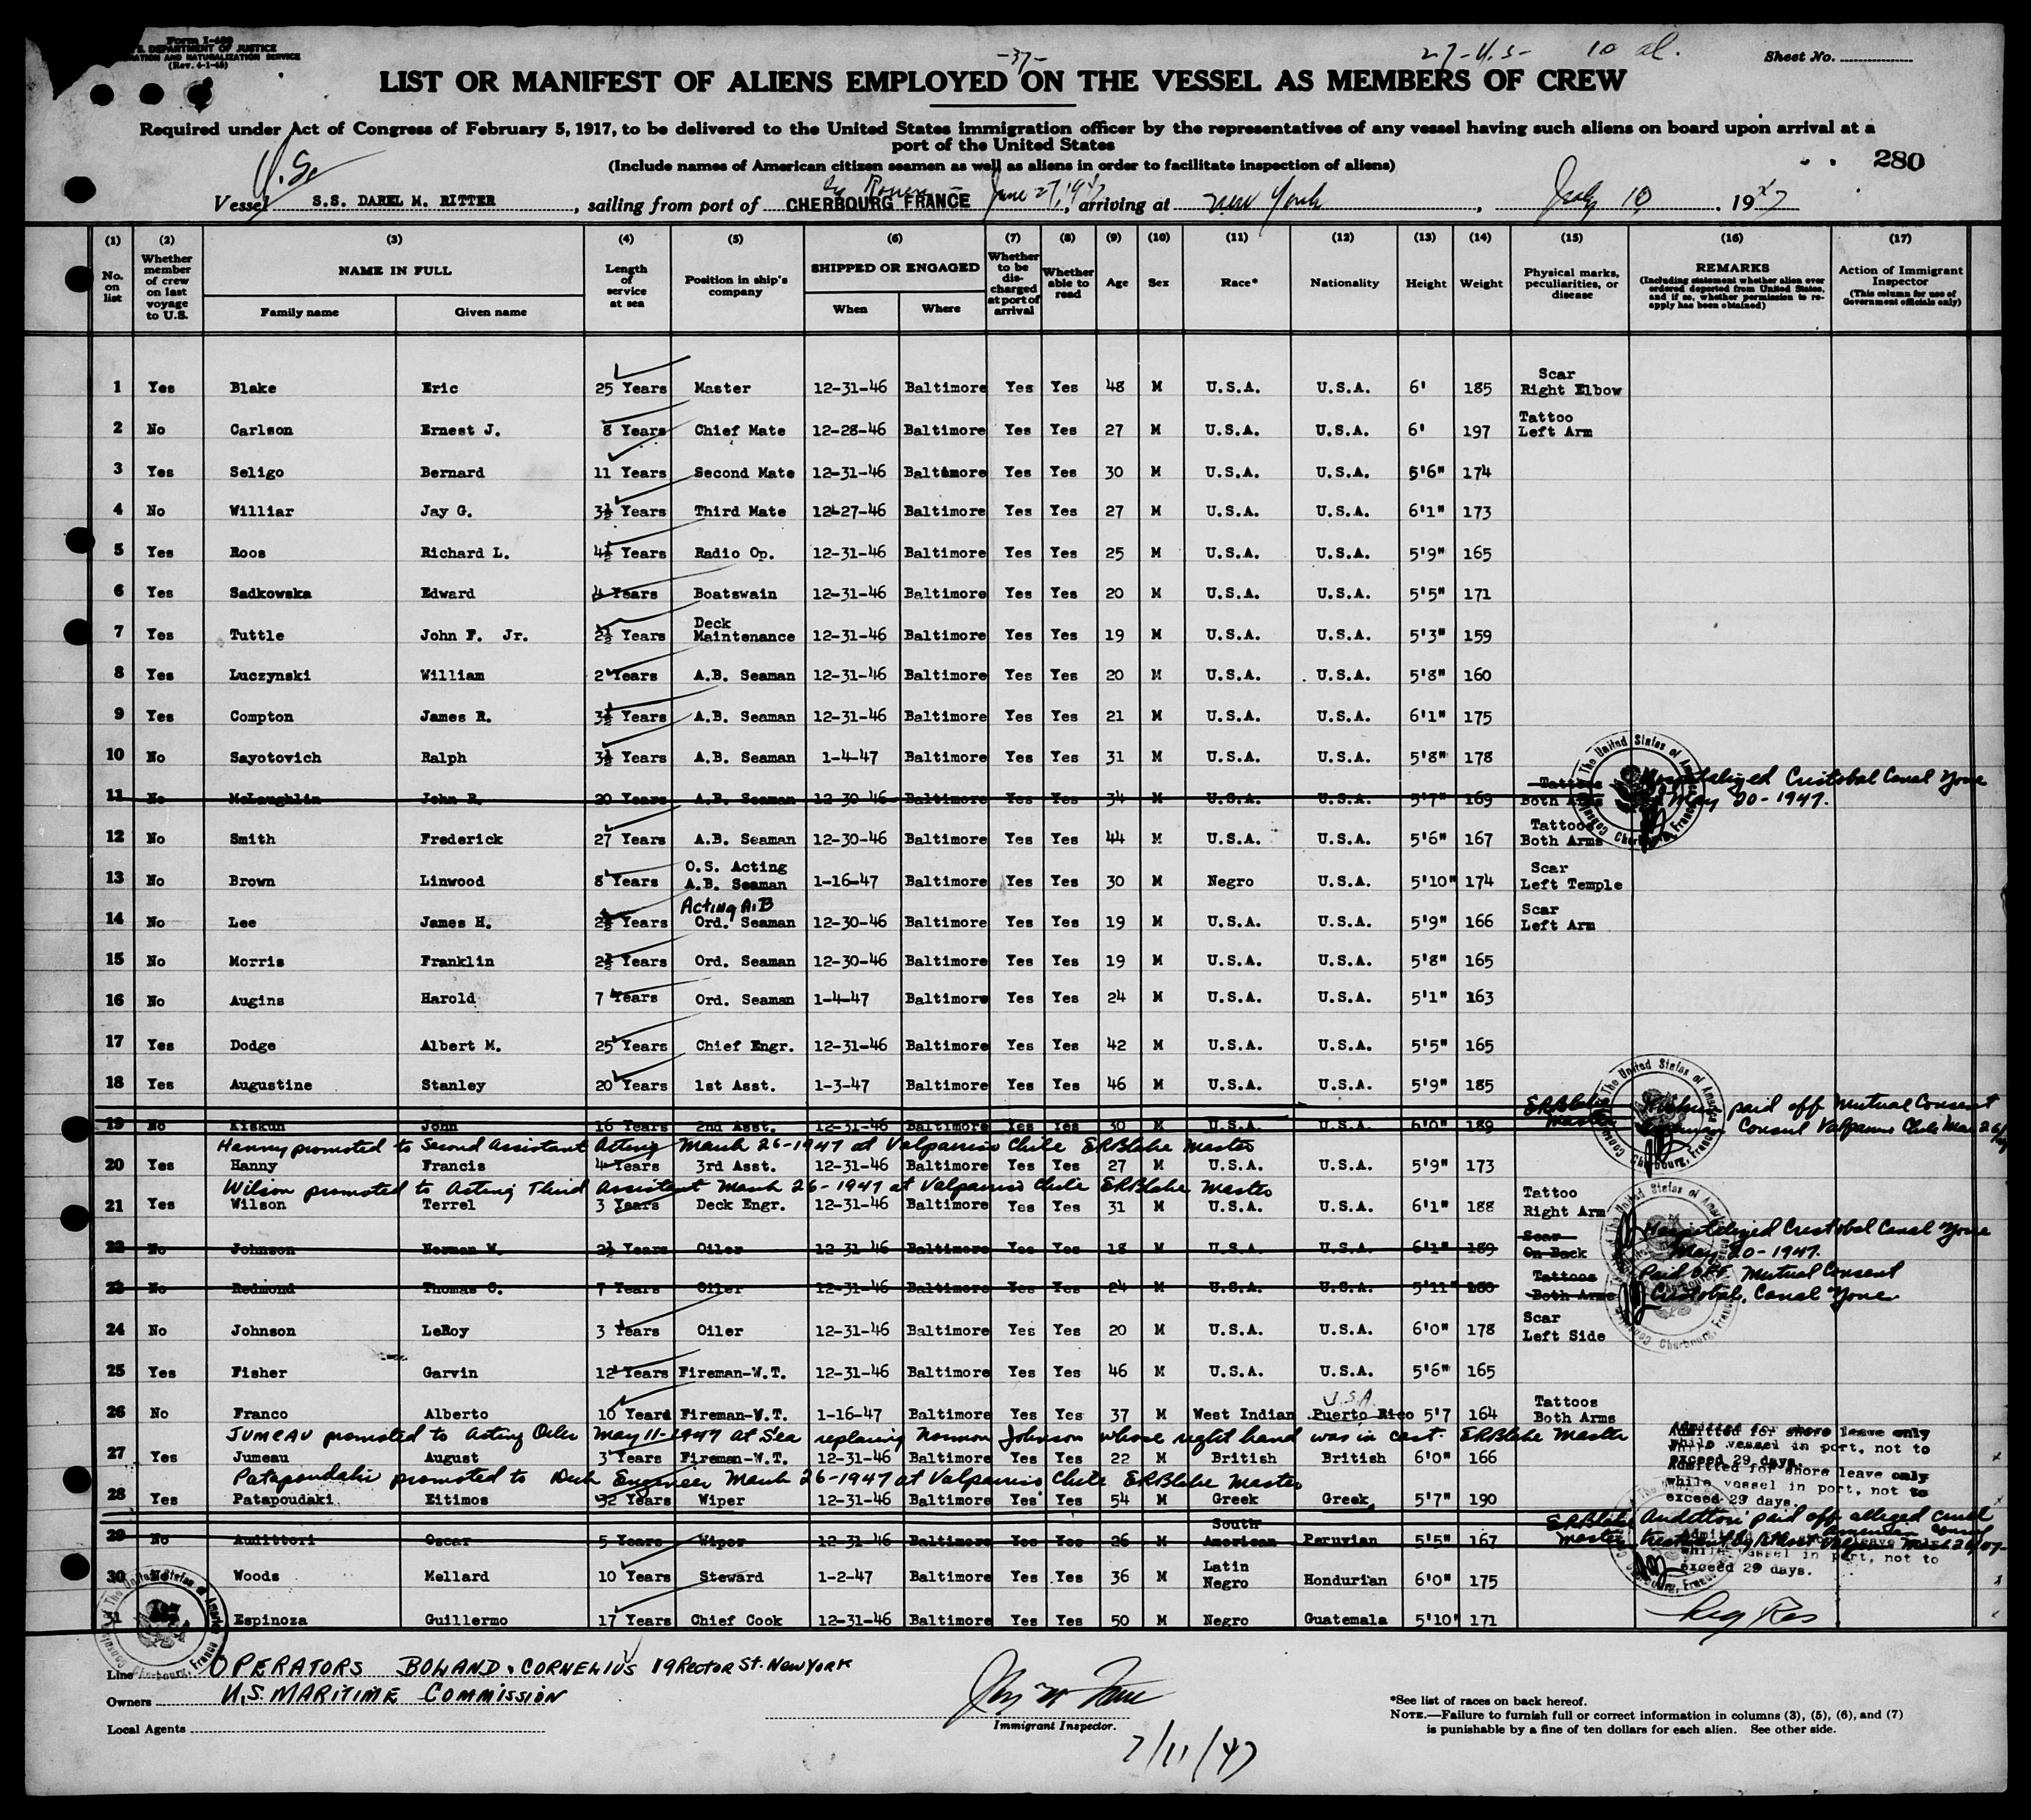 Form I-489
U.S. DEPARTMENT OF JUSTICE
IMMIGRATION AND NATURALIZATION SERVICE
(Rev. 4-1-45)
-37-
27-U.S-
10 al.
Sheet No.
LIST OR MANIFEST OF ALIENS EMPLOYED ON THE VESSEL AS MEMBERS OF CREW
Required under Act of Congress of February 5, 1917, to be delivered to the United States immigration officer by the representatives of any vessel having such aliens on board upon arrival at a
port of the United States
(Include names of American citizen seamen as well as aliens in order to facilitate inspection of aliens)
280
U.S.
Vessel S.S. DAREL M. RITTER, sailing from port of CHERBOURG FRANCE June 27, 1947, arriving at New York, July 10, 1947
(1) (2) (3) (4) (5) (6) (7) (8) (9) (10) (11) (12) (13) (14) (15) (16) (17)
No. on list
Whether member of crew on last voyage to U.S.
NAME IN FULL
Family name
Given name
Length of service at sea
Position in ship's company
SHIPPED OR ENGAGED
When
Where
Whether to be discharged at port of arrival
Whether able to read
Age
Sex
Race*
Nationality
Height
Weight
Physical marks, peculiarities, or disease
REMARKS
(Including statement whether alien ever ordered deported from United States, and if so, whether permission to reapply has been obtained)
Action of Immigrant Inspector
(This column for use of Government officials only)
1 Yes Blake Eric 25 Years Master 12-31-46 Baltimore Yes Yes 48 M U.S.A. U.S.A. 6' 185 Scar Right Elbow
2 No Carlson Ernest J. 8 Years Chief Mate 12-28-46 Baltimore Yes Yes 27 M U.S.A. U.S.A. 6' 197 Tattoo Left Arm
3 Yes Seligo Bernard 11 Years Second Mate 12-31-46 Baltimore Yes Yes 30 M U.S.A. U.S.A. 5'6" 174
4 No Williar Jay G. 3½ Years Third Mate 12-27-46 Baltimore Yes Yes 27 M U.S.A. U.S.A. 6'1" 173
5 Yes Roos Richard L. 4½ Years Radio Op. 12-31-46 Baltimore Yes Yes 25 M U.S.A. U.S.A. 5'9" 165
6 Yes Sadkowska Edward 4 Years Boatswain 12-31-46 Baltimore Yes Yes 20 M U.S.A. U.S.A. 5'5" 171
7 Yes Tuttle John F. Jr. 2½ Years Deck Maintenance 12-31-46 Baltimore Yes Yes 19 M U.S.A. U.S.A. 5'3" 159
8 Yes Luczynski William 2 Years A.B. Seaman 12-31-46 Baltimore Yes Yes 20 M U.S.A. U.S.A. 5'8" 160
9 Yes Compton James R. 3½ Years A.B. Seaman 12-31-46 Baltimore Yes Yes 21 M U.S.A. U.S.A. 6'1" 175
10 No Sayotovich Ralph 3½ Years A.B. Seaman 1-4-47 Baltimore Yes Yes 31 M U.S.A. U.S.A. 5'8" 178
11 No McLaughlin John R. 20 Years A.B. Seaman 12-30-46 Baltimore Yes Yes 34 M U.S.A. U.S.A. 5'7" 169 Tattoos Both Arms Hospitalized Cristobal Canal Zone May 20-1947.
12 No Smith Frederick 27 Years A.B. Seaman 12-30-46 Baltimore Yes Yes 44 M U.S.A. U.S.A. 5'6" 167 Tattoos Both Arms
13 No Brown Linwood 8 Years O.S. Acting A.B. Seaman 1-16-47 Baltimore Yes Yes 30 M Negro U.S.A. 5'10" 174 Scar Left Temple
14 No Lee James H. 2½ Years Acting A.B Ord. Seaman 12-30-46 Baltimore Yes Yes 19 M U.S.A. U.S.A. 5'9" 166 Scar Left Arm
15 No Morris Franklin 2½ Years Ord. Seaman 12-30-46 Baltimore Yes Yes 19 M U.S.A. U.S.A. 5'8" 165
16 No Augins Harold 7 Years Ord. Seaman 1-4-47 Baltimore Yes Yes 24 M U.S.A. U.S.A. 5'1" 163
17 Yes Dodge Albert M. 25 Years Chief Engr. 12-31-46 Baltimore Yes Yes 42 M U.S.A. U.S.A. 5'5" 165
18 Yes Augustine Stanley 20 Years 1st Asst. 1-3-47 Baltimore Yes Yes 46 M U.S.A. U.S.A. 5'9" 185
19 No Kiskun John 16 Years 2nd Asst. 12-31-46 Baltimore Yes Yes 30 M U.S.A. U.S.A. 6'0" 189 ERBlake Master Kiskun paid off Mutual Consent American Consul Valparaiso Chile Mar 26/47
Hanny promoted to Second Assistant Acting March 26-1947 at Valparaiso Chile ERBlake Master
20 Yes Hanny Francis 4 Years 3rd Asst. 12-31-46 Baltimore Yes Yes 27 M U.S.A. U.S.A. 5'9" 173
Wilson promoted to Acting Third Assistant March 26-1947 at Valparaiso Chile ERBlake Master
21 Yes Wilson Terrel 3 Years Deck Engr. 12-31-46 Baltimore Yes Yes 31 M U.S.A. U.S.A. 6'1" 188 Tattoo Right Arm
22 No Johnson Norman W. 2½ Years Oiler 12-31-46 Baltimore Yes Yes 18 M U.S.A. U.S.A. 6'1" 189 Scar On Back Hospitalized Cristobal Canal Zone May 20-1947.
23 No Redmond Thomas C. 7 Years Oiler 12-31-46 Baltimore Yes Yes 24 M U.S.A. U.S.A. 5'11" 180 Tattoos Both Arms Paid off Mutual Consent Cristobal, Canal Zone
24 No Johnson LeRoy 3 Years Oiler 12-31-46 Baltimore Yes Yes 20 M U.S.A. U.S.A. 6'0" 178 Scar Left Side
25 Yes Fisher Garvin 12 Years Fireman-W.T. 12-31-46 Baltimore Yes Yes 46 M U.S.A. U.S.A. 5'6" 165
26 No Franco Alberto 10 Years Fireman-W.T. 1-16-47 Baltimore Yes Yes 37 M West Indian Puerto Rico U.S.A. 5'7 164 Tattoos Both Arms
JUMEAU promoted to Acting Oiler May 11-1947 at Sea replacing Norman Johnson whose right hand was in cast. ERBlake Master
27 Yes Jumeau August 3 Years Fireman-W.T. 12-31-46 Baltimore Yes Yes 22 M British British 6'0" 166 Admitted for shore leave only while vessel in port, not to exceed 29 days.
Patapoudaki promoted to Deck Engineer March 26-1947 at Valparaiso Chile ERBlake Master
28 Yes Patapoudaki Eitimos 32 Years Wiper 12-31-46 Baltimore Yes Yes 54 M Greek Greek 5'7" 190 Admitted for shore leave only while vessel in port, not to exceed 29 days.
29 No Audittori Oscar 5 Years Wiper 12-31-46 Baltimore Yes Yes 26 M South American Peruvian 5'5" 167 ERBlake Master Audittori paid off alleged cruel treatment by American Consul March 26/47
30 No Woods Mellard 10 Years Steward 1-2-47 Baltimore Yes Yes 36 M Latin Negro Hondurian 6'0" 175 while vessel in port, not to exceed 29 days.
31 Espinoza Guillermo 17 Years Chief Cook 12-31-46 Baltimore Yes Yes 50 M Negro Guatemala 5'10" 171 Leg Res
Line OPERATORS BOLAND & CORNELIUS 19 Rector St. New York
Owners U.S. MARITIME COMMISSION
Local Agents
Immigrant Inspector.
7/11/47
*See list of races on back hereof.
NOTE.—Failure to furnish full or correct information in columns (3), (5), (6), and (7)
is punishable by a fine of ten dollars for each alien. See other side.